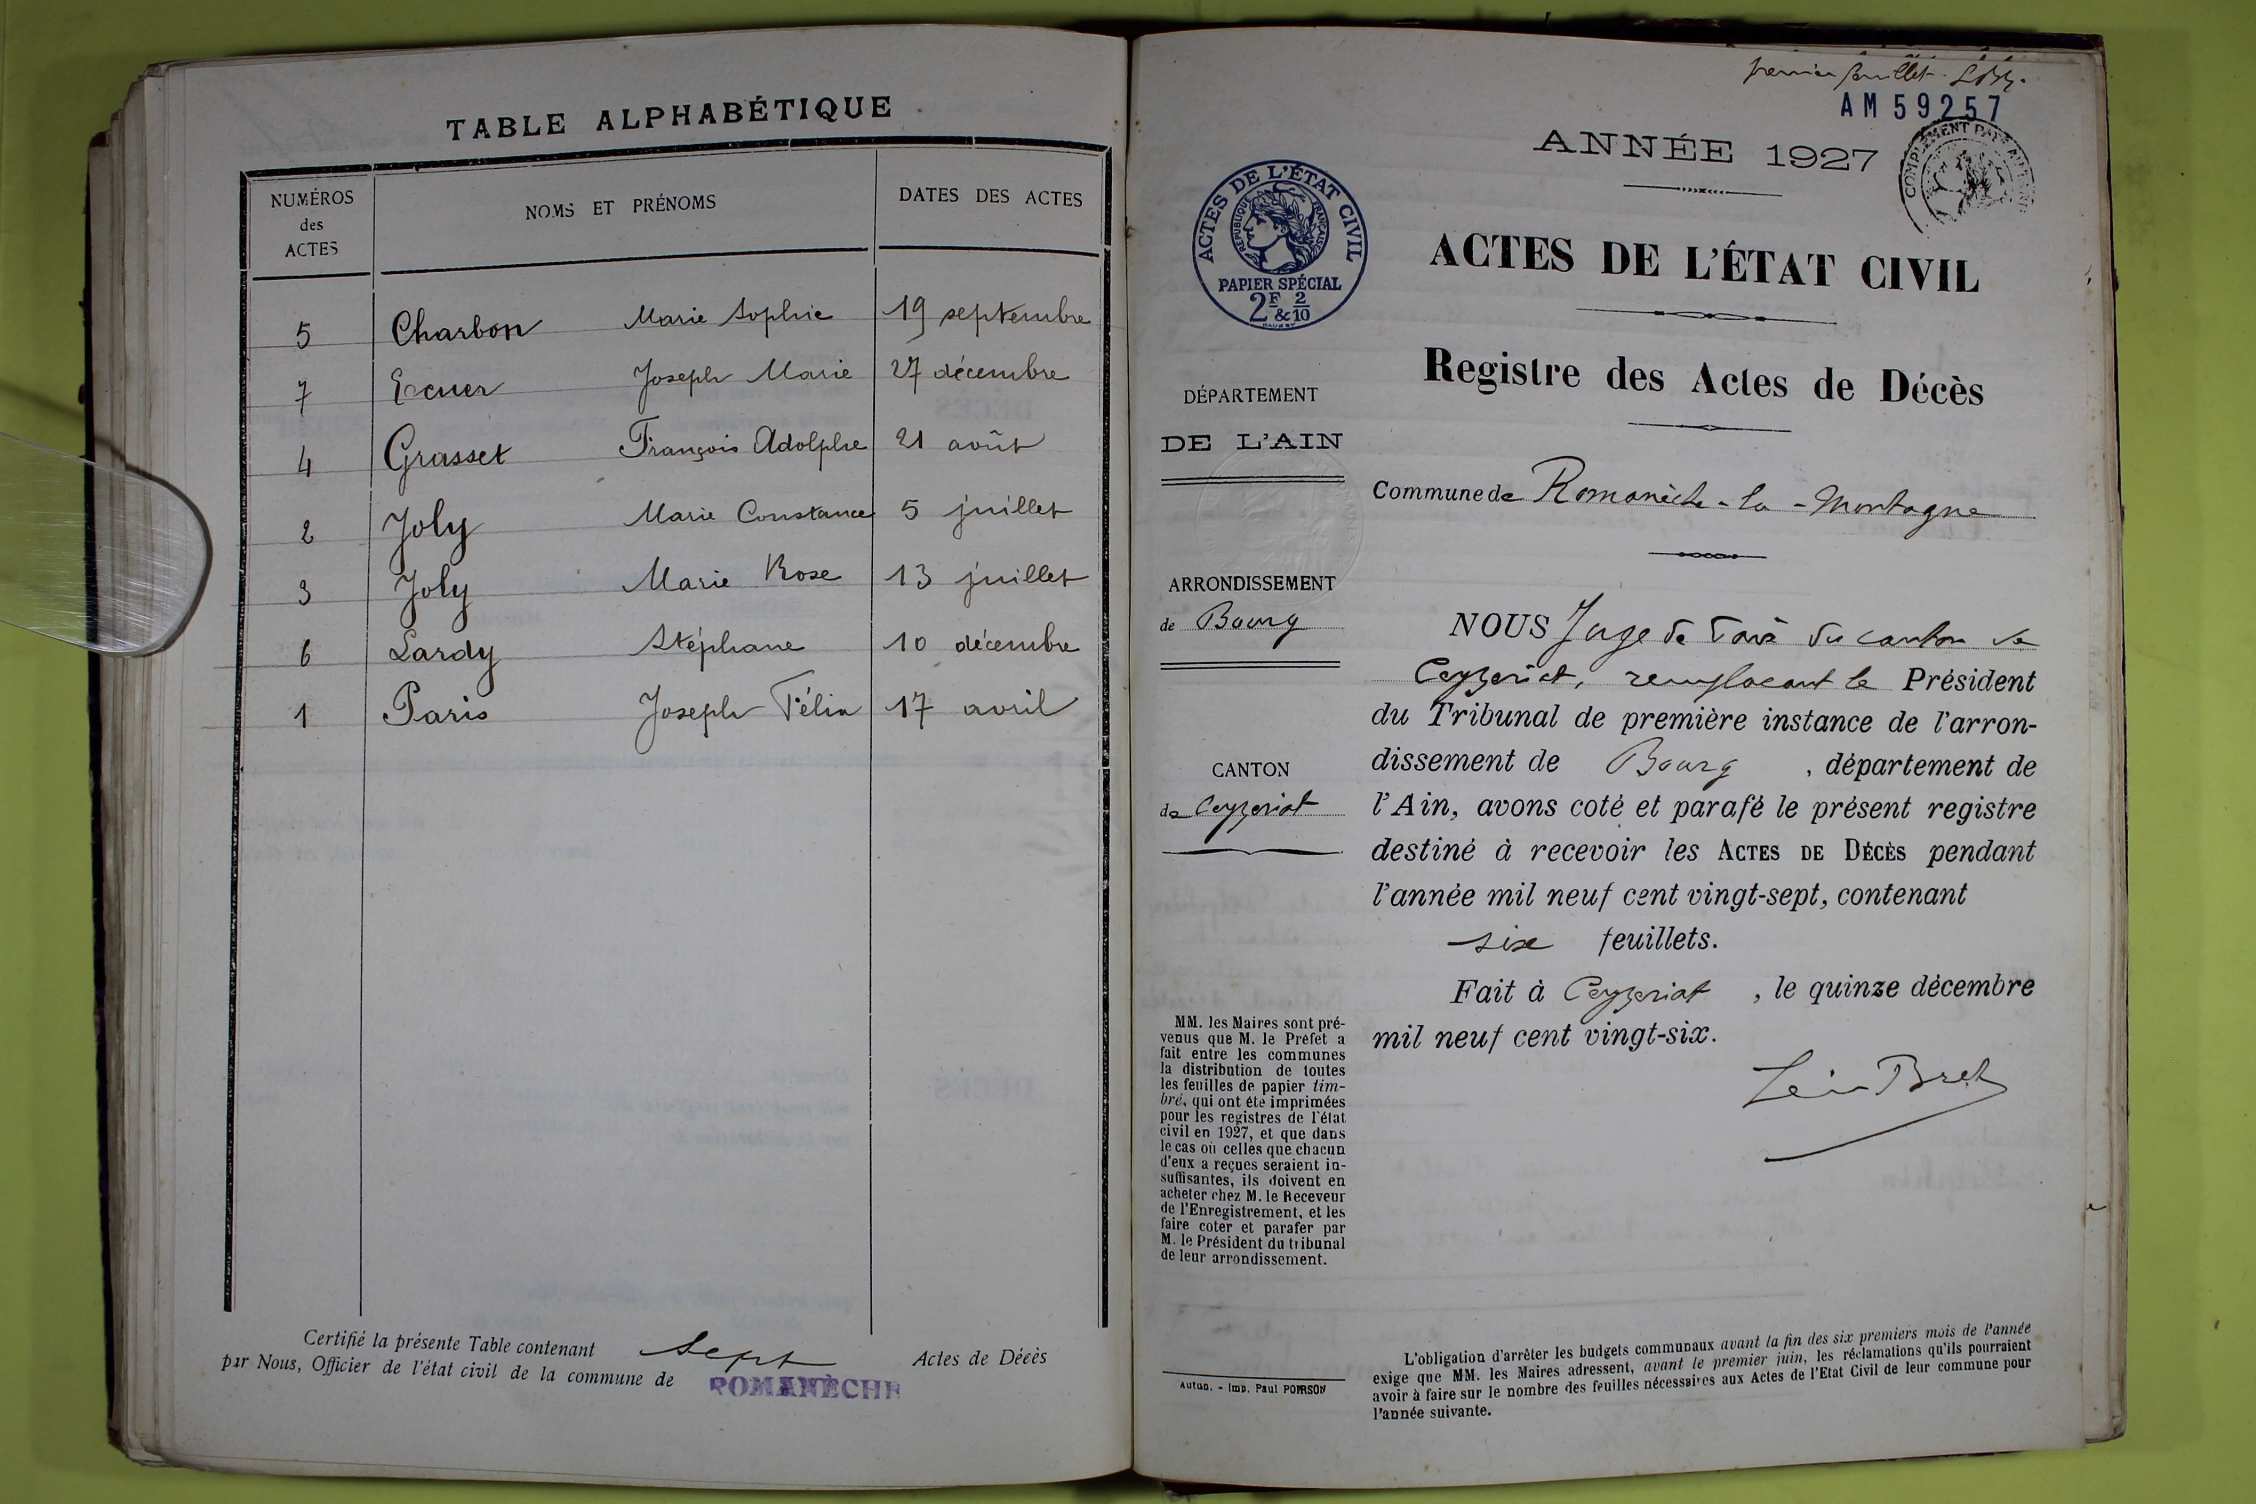 TABLE ALPHABÉTIQUE
NUMÉROS des ACTES NOMS ET PRÉNOMS DATES DES ACTES
5 Charbon Marie Sophie 19 septembre
7 Joseph Marie 27 décembre
4 Grasset François Adolphe 21 août
2 Joly Marie Constance 5 juillet
3 Joly Marie Rose 13 juillet
6 Lardy Stéphane 10 décembre
1 Paris Joseph Félix 17 avril
Certifié la présente Table contenant sept Actes de Décès
par Nous, Officier de l'état civil de la commune de ROMANÈCHE
premier feuillet.
AM59257
ANNÉE 1927
COMPLÉMENT
ACTES DE L'ÉTAT CIVIL
RÉPUBLIQUE FRANÇAISE
PAPIER SPÉCIAL
2F & 2/10
ACTES DE L'ÉTAT CIVIL
Registre des Actes de Décès
DÉPARTEMENT
DE L'AIN
Commune de Romanèche-la-Montagne
ARRONDISSEMENT
de Bourg
CANTON
de Ceyzeriat
MM. les Maires sont pré-
venus que M. le Préfet a
fait entre les communes
la distribution de toutes
les feuilles de papier tim-
bré, qui ont été imprimées
pour les registres de l'état
civil en 1927, et que dans
le cas où celles que chacun
d'eux a reçues seraient in-
suffisantes, ils doivent en
acheter chez M. le Receveur
de l'Enregistrement, et les
faire coter et parafer par
M. le Président du tribunal
de leur arrondissement.
Autun. - Imp. Paul POIRSON
NOUS Juge de Paix du canton de
Ceyzeriat, remplaçant le Président
du Tribunal de première instance de l'arron-
dissement de Bourg, département de
l'Ain, avons coté et parafé le présent registre
destiné à recevoir les ACTES DE DÉCÈS pendant
l'année mil neuf cent vingt-sept, contenant
six feuillets.
Fait à Ceyzeriat, le quinze décembre
mil neuf cent vingt-six.
L'obligation d'arrêter les budgets communaux avant la fin des six premiers mois de l'année
exige que MM. les Maires adressent, avant le premier juin, les réclamations qu'ils pourraient
avoir à faire sur le nombre des feuilles nécessaires aux Actes de l'Etat Civil de leur commune pour
l'année suivante.